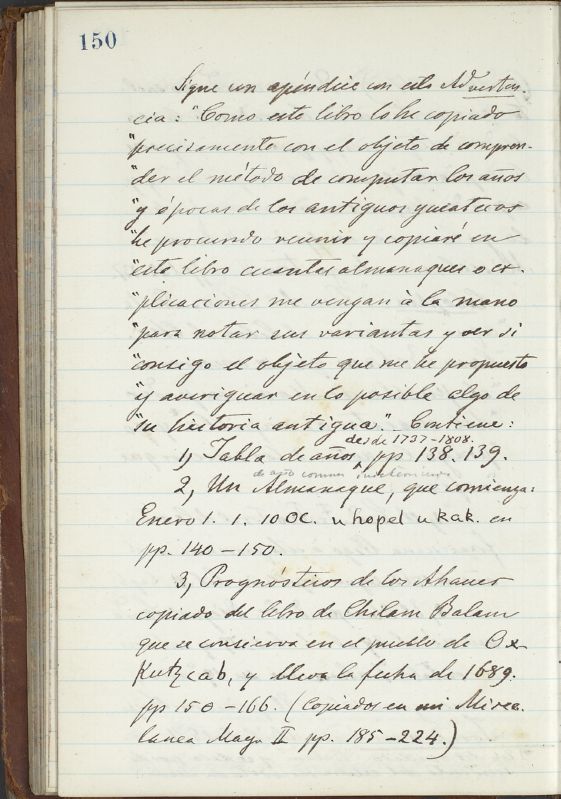 150
Sigue un apéndice con esta Adverten-
cia: "Como este libro lo he copiado
"precisamente con el objeto de compren-
"der el método de computar los años
"y épocas de los antiguos yucatecos
"he procurado reunir y copiaré en
"este libro cuantas almanaques o ex-
"plicaciones me vengan à la mano
"para notar sus variantas y ver si
"consigo el objeto que me he propuesto
"y averiguar en lo posible algo de
"su historia antigua". Contiene:
desde 1737-1808.
1, Tabla de años, pp 138. 139.
de año comun
2, Un Almanaque, que comienza:
Enero 1. 1. 10 Oc. u hopel u kak. en
pp. 140-150.
3, Prognósticos de los Ahaues
copiado del libro de Chilam Balam
que se conserva en el pueblo de Ox-
Kutzcab, y lleva la fecha de 1689.
pp 150-166. (Copiados en mi Misce-
lanea Maya II pp. 185-224.)